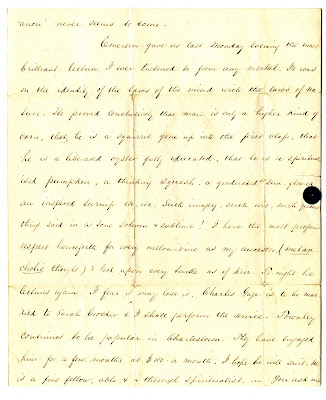 "anon" never seems to come.
Emerson gave us last Monday evening the most
brilliant lecture I ever listened to from any mortal. It was
on the identity of the laws of the mind with the laws of na-
ture. He proved conclusively that man is only a higher kind of
corn, that he is a squirrel gone up into the first class, that
he is a liberated oyster fully educated, that he is a spiritual-
ized pumpkin, a thinking squash, a graduated sun-flower,
an inspired turnip etc. Such imagery, such wit, such
things said in a tone solemn & sublime! I have the most profound
respect henceforth for every melon-vine as my ancestor, (melan-
cholic though) & look upon every turtle as of kin. To night he
lectures again. I fear I may lose it. Charles Gage is to be mar-
ried to Sarah Crocker & I shall perform the service. Townley
continues to be popular in Charlestown. They have engaged
him for a few months at a month. I hope he will suit. He
is a fine fellow, able & a thorough spiritualist. You ask me